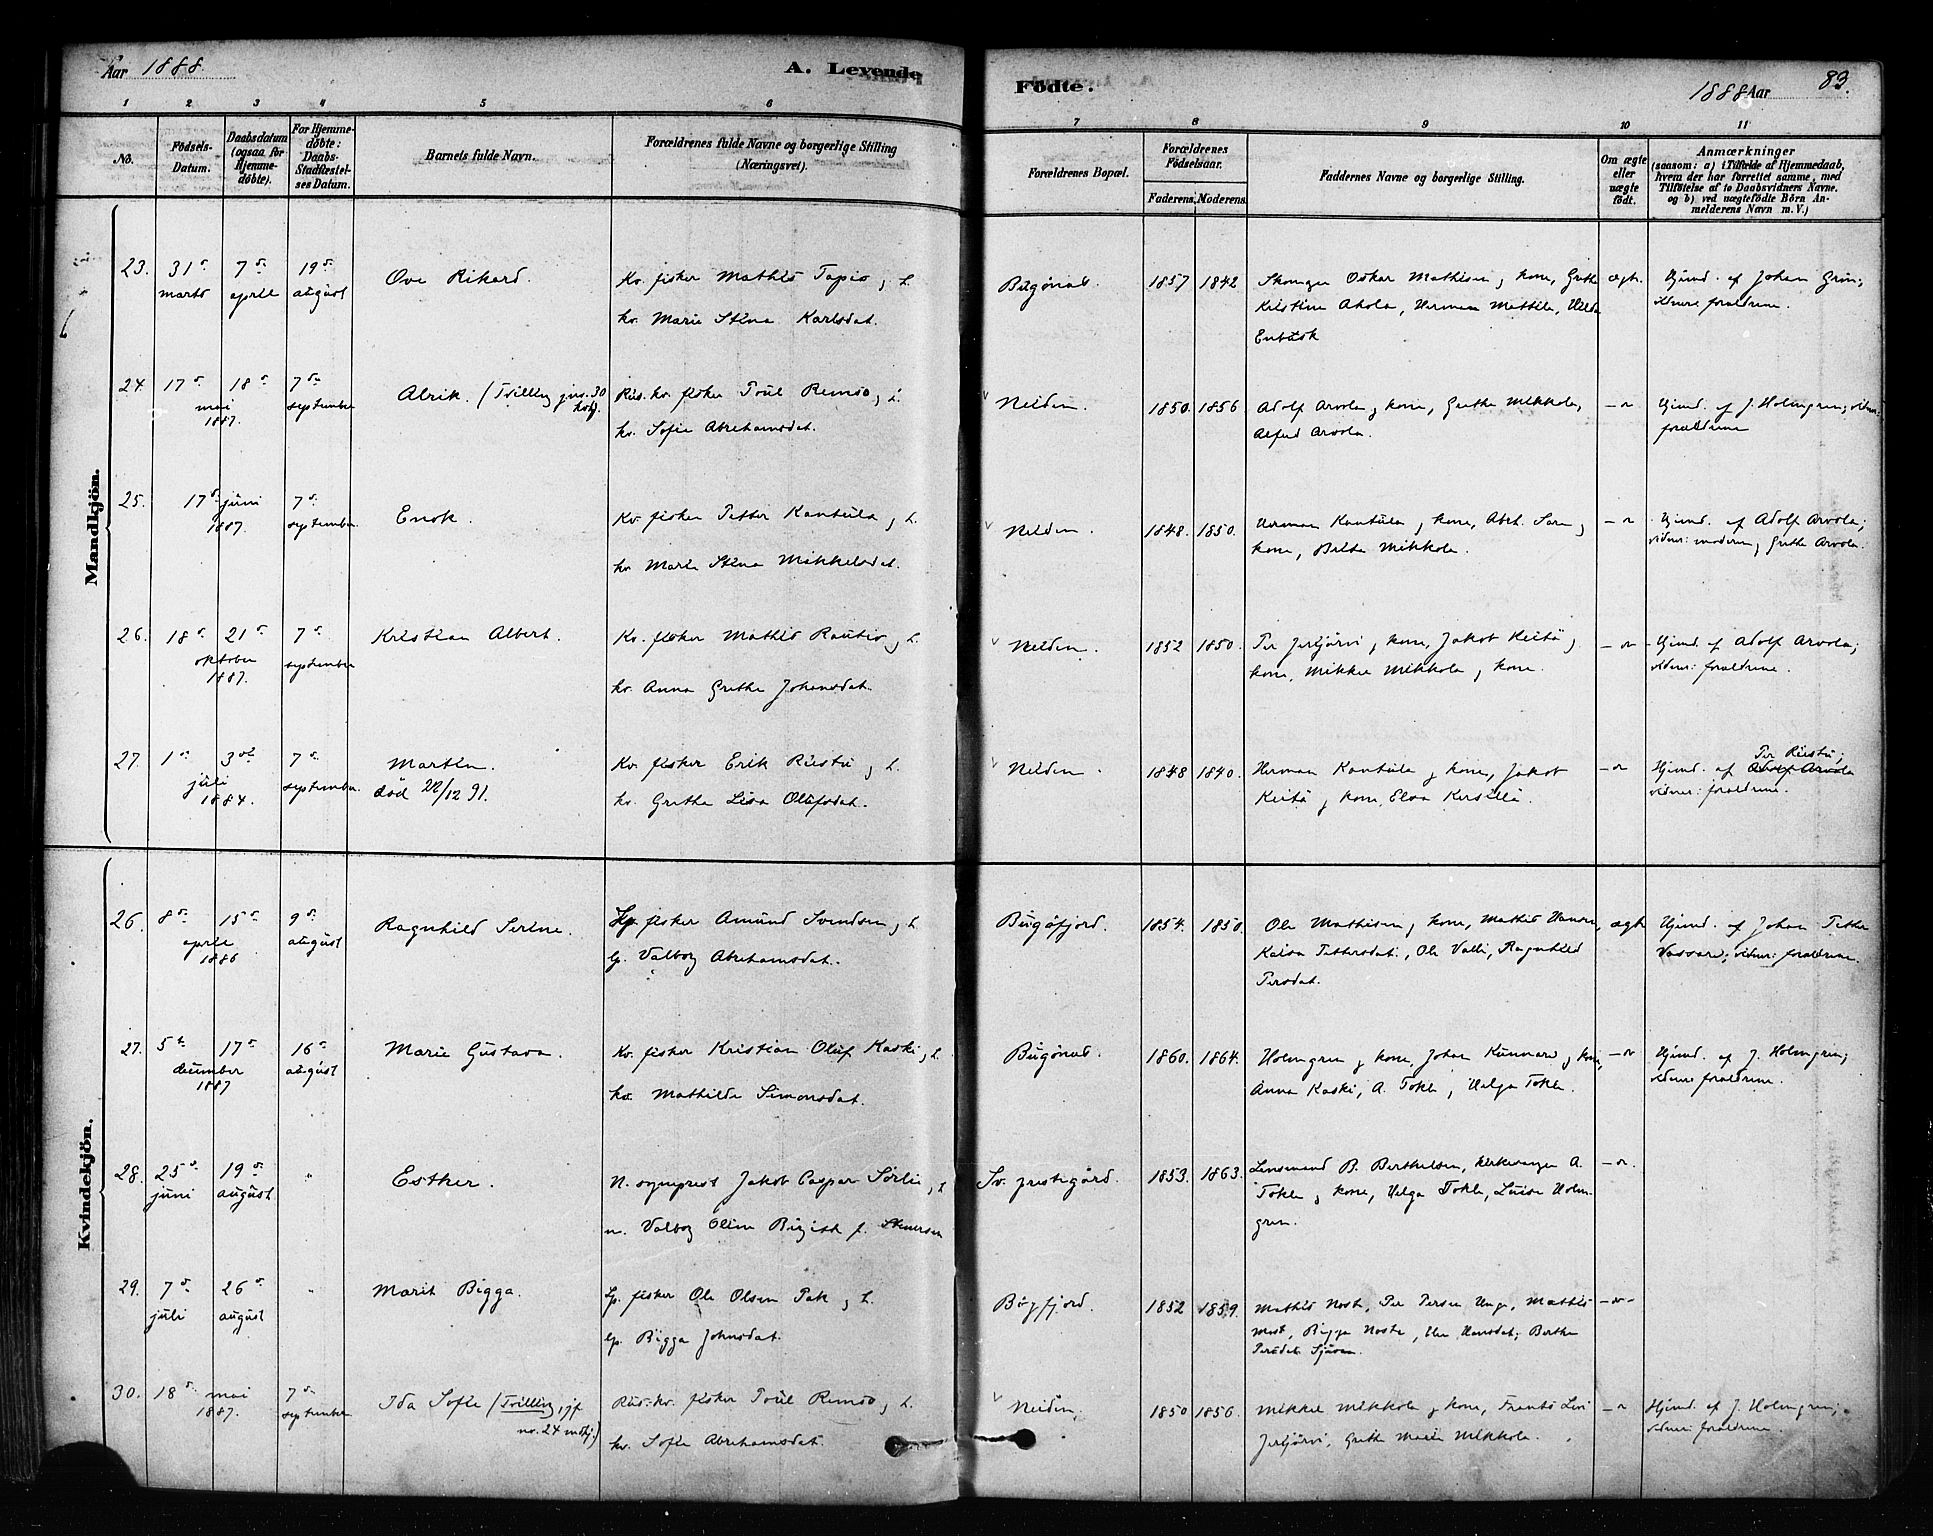 Aar 1888.
A. Levende
Födte.
1888 Aar
83.
1 2 3 4 5 6 7 8 9 10 11
No.
Födsels-Datum.
Daabsdatum (ogsaa for Hjemme-döbte).
For Hjemme-döbte: Daabs-Stadfæstel-ses Datum.
Barnets fulde Navn.
Forældrenes fulde Navne og borgerlige Stilling (Næringsvei).
Forældrenes Bopæl.
Forældrenes Födselsaar.
Faderens. Moderens.
Faddernes Navne og borgerlige Stilling.
Om ægte eller uægte födt.
Anmærkninger
(saasom: a) i Tilfælde af Hjemmedaab,
hvem der har forrettet samme, med
Tilföielse af to Daabsvidners Navne.
og b) ved uægtefödte Börn An-
melderens Navn m. V.)
Mandkjön.
23. 31 marts 7 april 19 august Ove Rikard. Kv. fisker Mathis Tapio, & kv. Marie Stina Karlsdat. Bugönæs. 1857 1842 Oskar Mathisen & kone, Grethe Kristine Ahola, Herman Mattila, ægte. Hjemd. af Johan Grön; vidner forældrene.
24 17 mai 1887. 18 7 september Alrik. (Tvilling jvf. 30 kvkj.) Kv. fisker Poul Remso, & kv. Sofie Abrahamsdat. Neiden. 1850. 1856 Adolf Arvola & kone, Grethe Mikkola, Alfred Arvola. Hjemd. af J. Holmgren; vidner: forældrene
25. 17 juni 1887. 7 september Enok. Kv. fisker Petter Kantula, & kv. Marie Stina Mikkelsdat. Neiden. 1848. 1850. Herman Kantula & kone, & kone, Mikkola. Hjemd. af Adolf Arvola; vidner: moderen & Grethe Arvola.
26. 18 21 oktober 1887. 7 september Kristian Albert. Kv. fisker Mathis Rautio, & kv. Anna Grethe Johansdat. Neiden. 1852 1850. Per Jerijärvi & kone, Jakob Keitä & kone, Mikkel Mikkola & kone. Hjemd. af Adolf Arvola; vidner: forældrene.
27. 1 3 juli 1884. 7 september Martin. död 22/12 91. Kv. fisker Erik Ruistu, & kv. Grethe Lisa Olufsdat. Neiden. 1848 1840. Herman Kantula & kone, Jakob Keitä & kone, Elsa Hjemd. af Adolf Arvola Per Ruistu; vidner: forældrene.
Kvindekjön.
26. 8 15 april 1886 9 august Ragnhild Serine. Lp. fisker Amund Svendsen, & lp. Valborg Abrahamsdat. Bugöfjord. 1854. 1850. Ole Mathisen & kone, Mathis Hansen, Kaisa Pettersdat., Ole Valli, Ragnhild Persdat. ægte Hjemd. af Johan Petter vidner: forældrene.
27. 5 17 december 1887 16 august Marie Gustava. Kv. fisker Kristian Oluf Kaski, & kv. Mathilde Simonsdat. Bugönæs. 1860. 1864. Holmgren & kone, Johan Kunnari & kone, Anna Kaski, A. Tokle, Helga Tokle. Hjemd. af J. Holmgren; vidner forældrene.
28. 25 juni 19 august " Esther. N. sognprest Jakob Caspar Sörlie, & n. Valborg Oline Birgith f. Sv. prestegård. 1853. 1863. Lensmand B. Berthelsen, kirkesanger A. Tokle & kone, Helga Tokle, Luise Holmgren.
29. 7 juli 26 august " Marit Bigga. Lp. fisker Ole Olsen Pak, & lp. Bigga Johnsdat. Bögfjord. 1852 1859. Mathis Noste, Per Persen Unge, Mathis Bigga Noste, Hansdat; Berthe Persdat.
30. 18 mai 1887. 7 september Ida Sofie (Tvilling, jvf. no. 24 mdkj.) Kv. fisker Poul Remso, & kv. Sofie Abrahamsdat. Neiden. 1850 1856. Mikkel Mikkola & kone, Frants Levi Jerijärvi, Grethe Marie Mikkola. Hjemd. af J. Holmgren; vidner: forældrene.